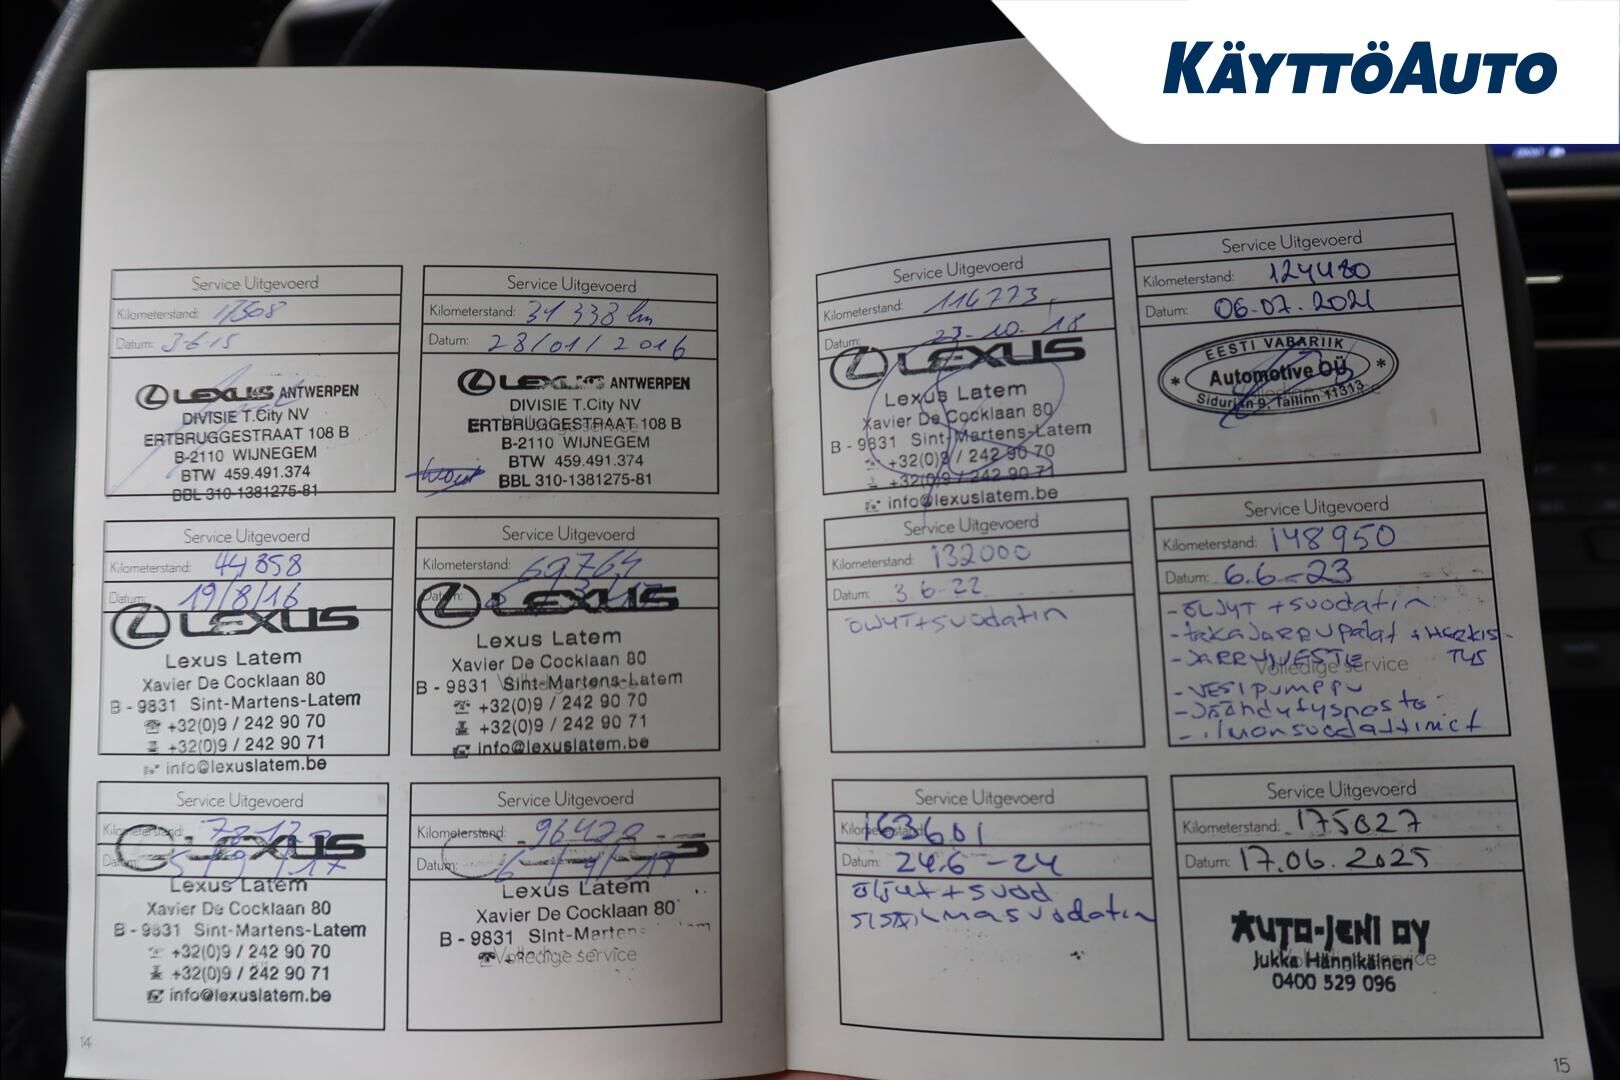 KÄYTTÖAUTO
Service Uitgevoerd
Kilometerstand: 17508
Datum: 3-6-15
LEXUS ANTWERPEN
DIVISIE T.City NV
ERTBRUGGESTRAAT 108 B
B-2110 WIJNEGEM
BTW 459.491.374
BBL 310-1381275-81
Service Uitgevoerd
Kilometerstand: 31 338 km
Datum: 28/01/2016
LEXUS ANTWERPEN
DIVISIE T.City NV
ERTBRUGGESTRAAT 108 B
B-2110 WIJNEGEM
BTW 459.491.374
BBL 310-1381275-81
Service Uitgevoerd
Kilometerstand: 44358
Datum: 19/8/16
LEXUS
Lexus Latem
Xavier De Cocklaan 80
B - 9831 Sint-Martens-Latem
+32(0)9 / 242 90 70
+32(0)9 / 242 90 71
info@lexuslatem.be
Service Uitgevoerd
Kilometerstand: 69764
Datum:
LEXUS
Lexus Latem
Xavier De Cocklaan 80
B - 9831 Sint-Martens-Latem
Volledige service
+32(0)9 / 242 90 70
+32(0)9 / 242 90 71
info@lexuslatem.be
Service Uitgevoerd
Kilometerstand:
Datum: 5/9/17
LEXUS
Lexus Latem
Xavier De Cocklaan 80
B - 9831 Sint-Martens-Latem
+32(0)9 / 242 90 70
+32(0)9 / 242 90 71
info@lexuslatem.be
Service Uitgevoerd
Kilometerstand: 96420
Datum:
Lexus Latem
Xavier De Cocklaan 80
B - 9831 Sint-Martens
Volledige service
14
Service Uitgevoerd
Kilometerstand: 114773
Datum: 23-10-18
LEXUS
Lexus Latem
Xavier De Cocklaan 80
B - 9831 Sint-Martens-Latem
+32(0)9 / 242 90 70
+32(0)9 / 242 90 71
info@lexuslatem.be
Service Uitgevoerd
Kilometerstand: 124480
Datum: 06.07.2021
EESTI VABARIIK
* Automotive OÜ *
Sidurjan 9, Tallinn 11313
Service Uitgevoerd
Kilometerstand: 132000
Datum: 3.6-22
ÖLJYT+suodatin
Service Uitgevoerd
Kilometerstand: 148950
Datum: 6.6-23
- ÖLJYT + suodatin
- takaJARRUpalat + HERKIS-
TYS
- JARRUNESTE
Volledige service
- VESIPUMPPU
- Jäähdytysneste
- ilmansuodattimet
Service Uitgevoerd
Kilometerstand: 163601
Datum: 24.6-24
öljyt + suod
sisäilmasuodatin
Service Uitgevoerd
Kilometerstand: 175027
Datum: 17.06.2025
AUTO-JENI OY
Jukka Hännikäinen
0400 529 096
15